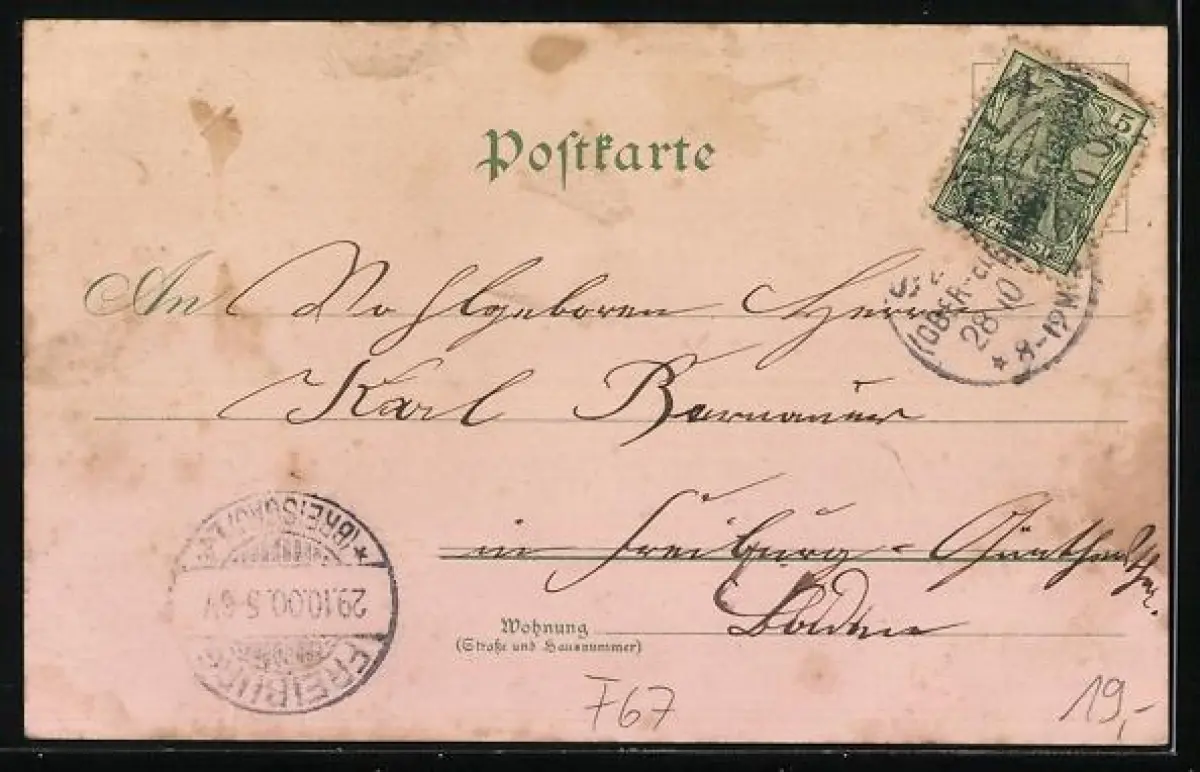 Postkarte
5
An Wohlgeboren Herrn
Karl Bernauer
in Freiburg - Günthersthal.
Baden
Wohnung
(Straße und Hausnummer)
(OBER-
28 10
* 8-12 M
* (BREISGAU)
29.10.00. 5-6 V
FREIBURG
F67
19,-